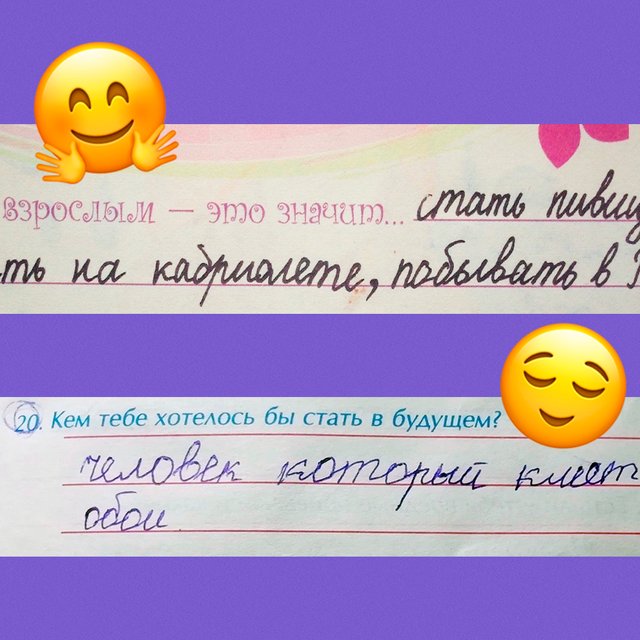 взрослым — это значит... стать
ть на кабриолете, побывать в
20. Кем тебе хотелось бы стать в будущем?
человек который клеет
обои